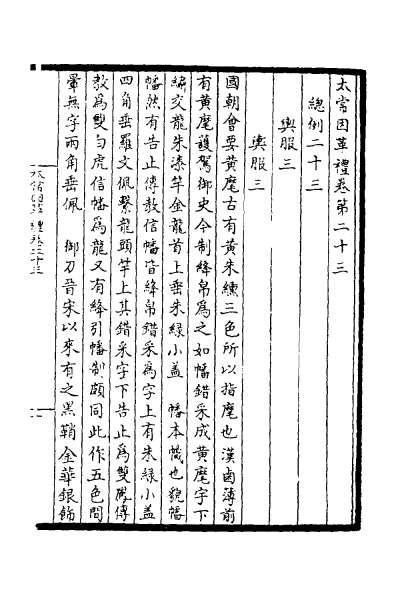 太常因革禮卷第二十三
總例二十三
輿服三
輿服三
國朝會要黃麾古有黃朱纁三色所以指麾也漢鹵簿前
有黃麾護駕御史今制絳帛爲之如幡錯采成黃麾字下
編交龍朱漆竿金龍首上垂朱綠小蓋 幡本幟也貌幡
幡然有告止傳教信幡皆絳帛錯采爲字上有朱綠小蓋
四角垂羅文佩繫龍頭竿上其錯采字下告止爲雙鳳傳
教爲雙白虎信幡爲龍又有絳引幡制頗同此作五色間
暈無字兩角垂佩 御刀晉宋以來有之黑鞘金華銀飾
太常因革禮卷二十三
一